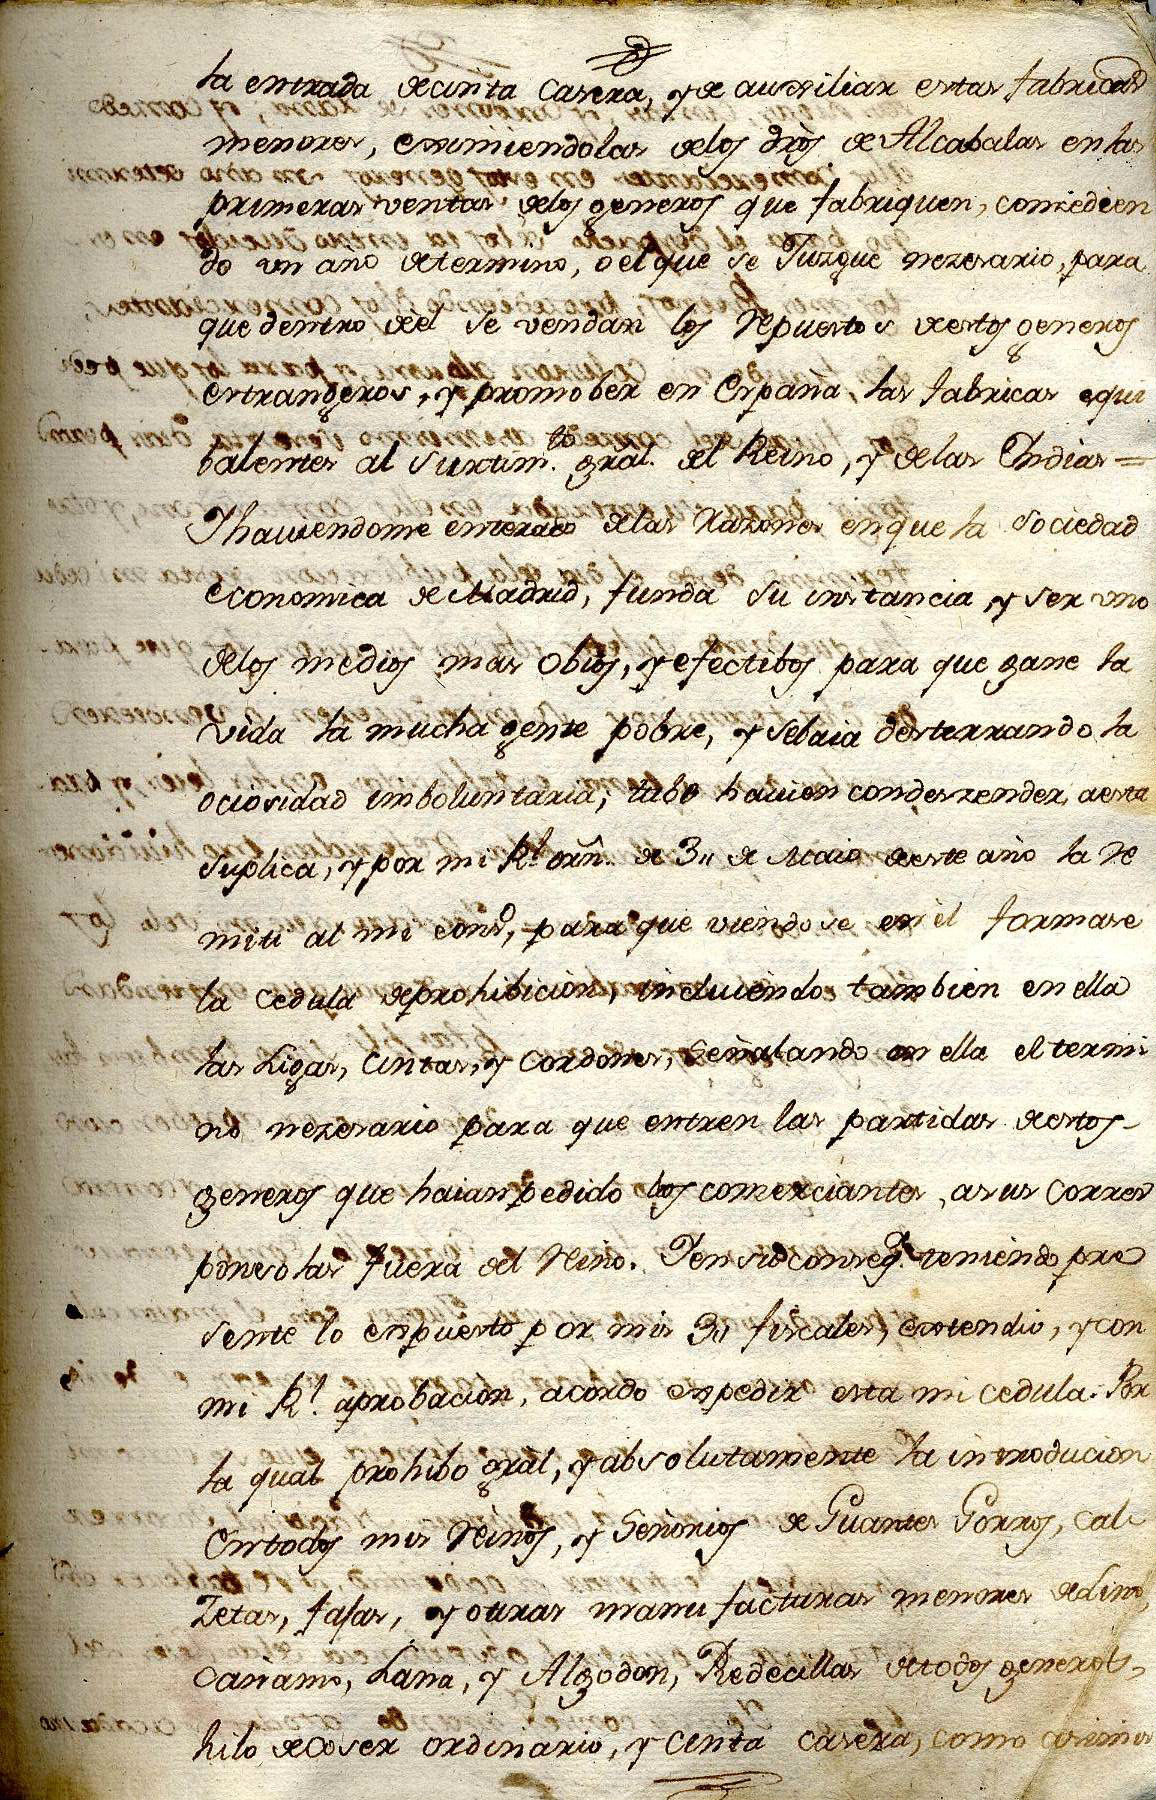 la entrada de cinta casera, y de auxiliar estas fabricas
menores, eximiendolas delos dros de Alcabalas en las
primeras ventas delos generos que fabriquen, conzedien
do un año determino, o el que se Juzgue nezesario, para
que dentro deèl se vendan los repuestos destos generos
estrangeros, y promober en España, las fabricas equi
balentes al surtim.to gràl. del Reino, y delas Indias =
Y haviendome enterado delas razones en que la sociedad
economica de Madrid, funda su instancia y ser uno
delos medios mas obios, y efectibos para que gane la
vida la mucha gente pobre, y se baia desterrando la
ociosidad imboluntaria; tube havien condeszender aesta
suplica, y por mi Rl. orñ. de 3,, de Maio deeste año la re
miti al mi cons.o, para que viendose en èl formase
la cedula deprohibicion, incluiendo tambien en ella
las Ligas, Cintas, y Cordones, señalando en ella el termi
no nezesario para que entren las partidas destos
generos que haian pedido los comerciantes, asus corres
ponsoles fuera del Reino. Y en su conseq.a teniendo pre
sente lo expuesto por mis 3,, fiscales, extendio, y con
mi Rl. aprobacion, acordo expedir esta mi cedula. Por
la qual prohibo gràl, y absolutamente la introducion
Entodos mis Reinos, y Señorios de Guantes Gorros, cal
zetas, fajas, y otras manufacturas menores delino,
cañamo, Lana, y Algodon, Redecillas detodos generos,
hilo decoser ordinario, y cinta casera, como asimis